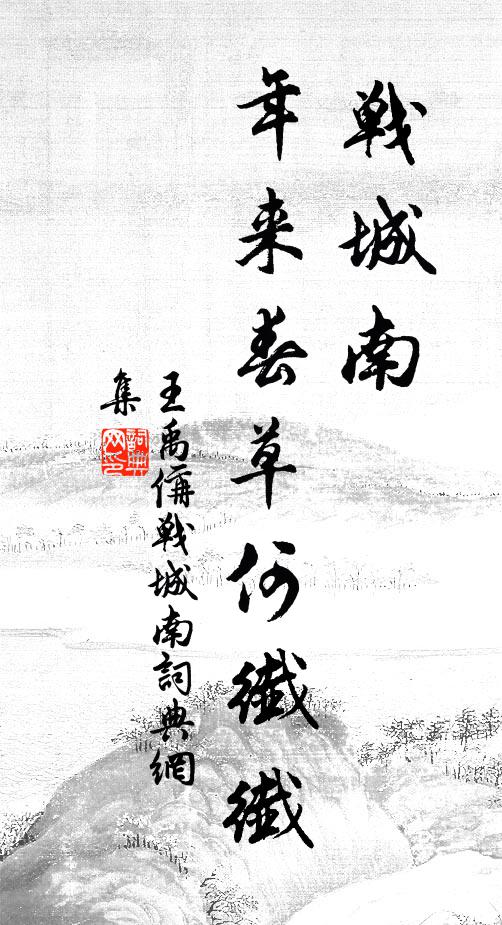 戰城南
年来春草何纖纖
王禹偁戰城南詞典網
集
詞典
网印